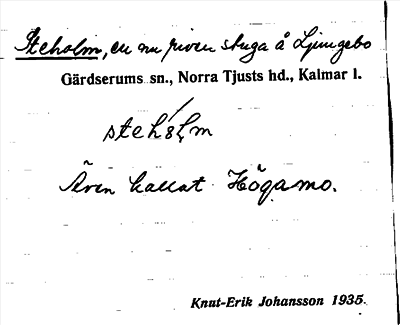 Steholm, en nu riven stuga å Ljungebo
Gärdserums sn., Norra Tjusts hd., Kalmar l.
stehólm
Även kallat Högamo.
Knut-Erik Johansson 1935.